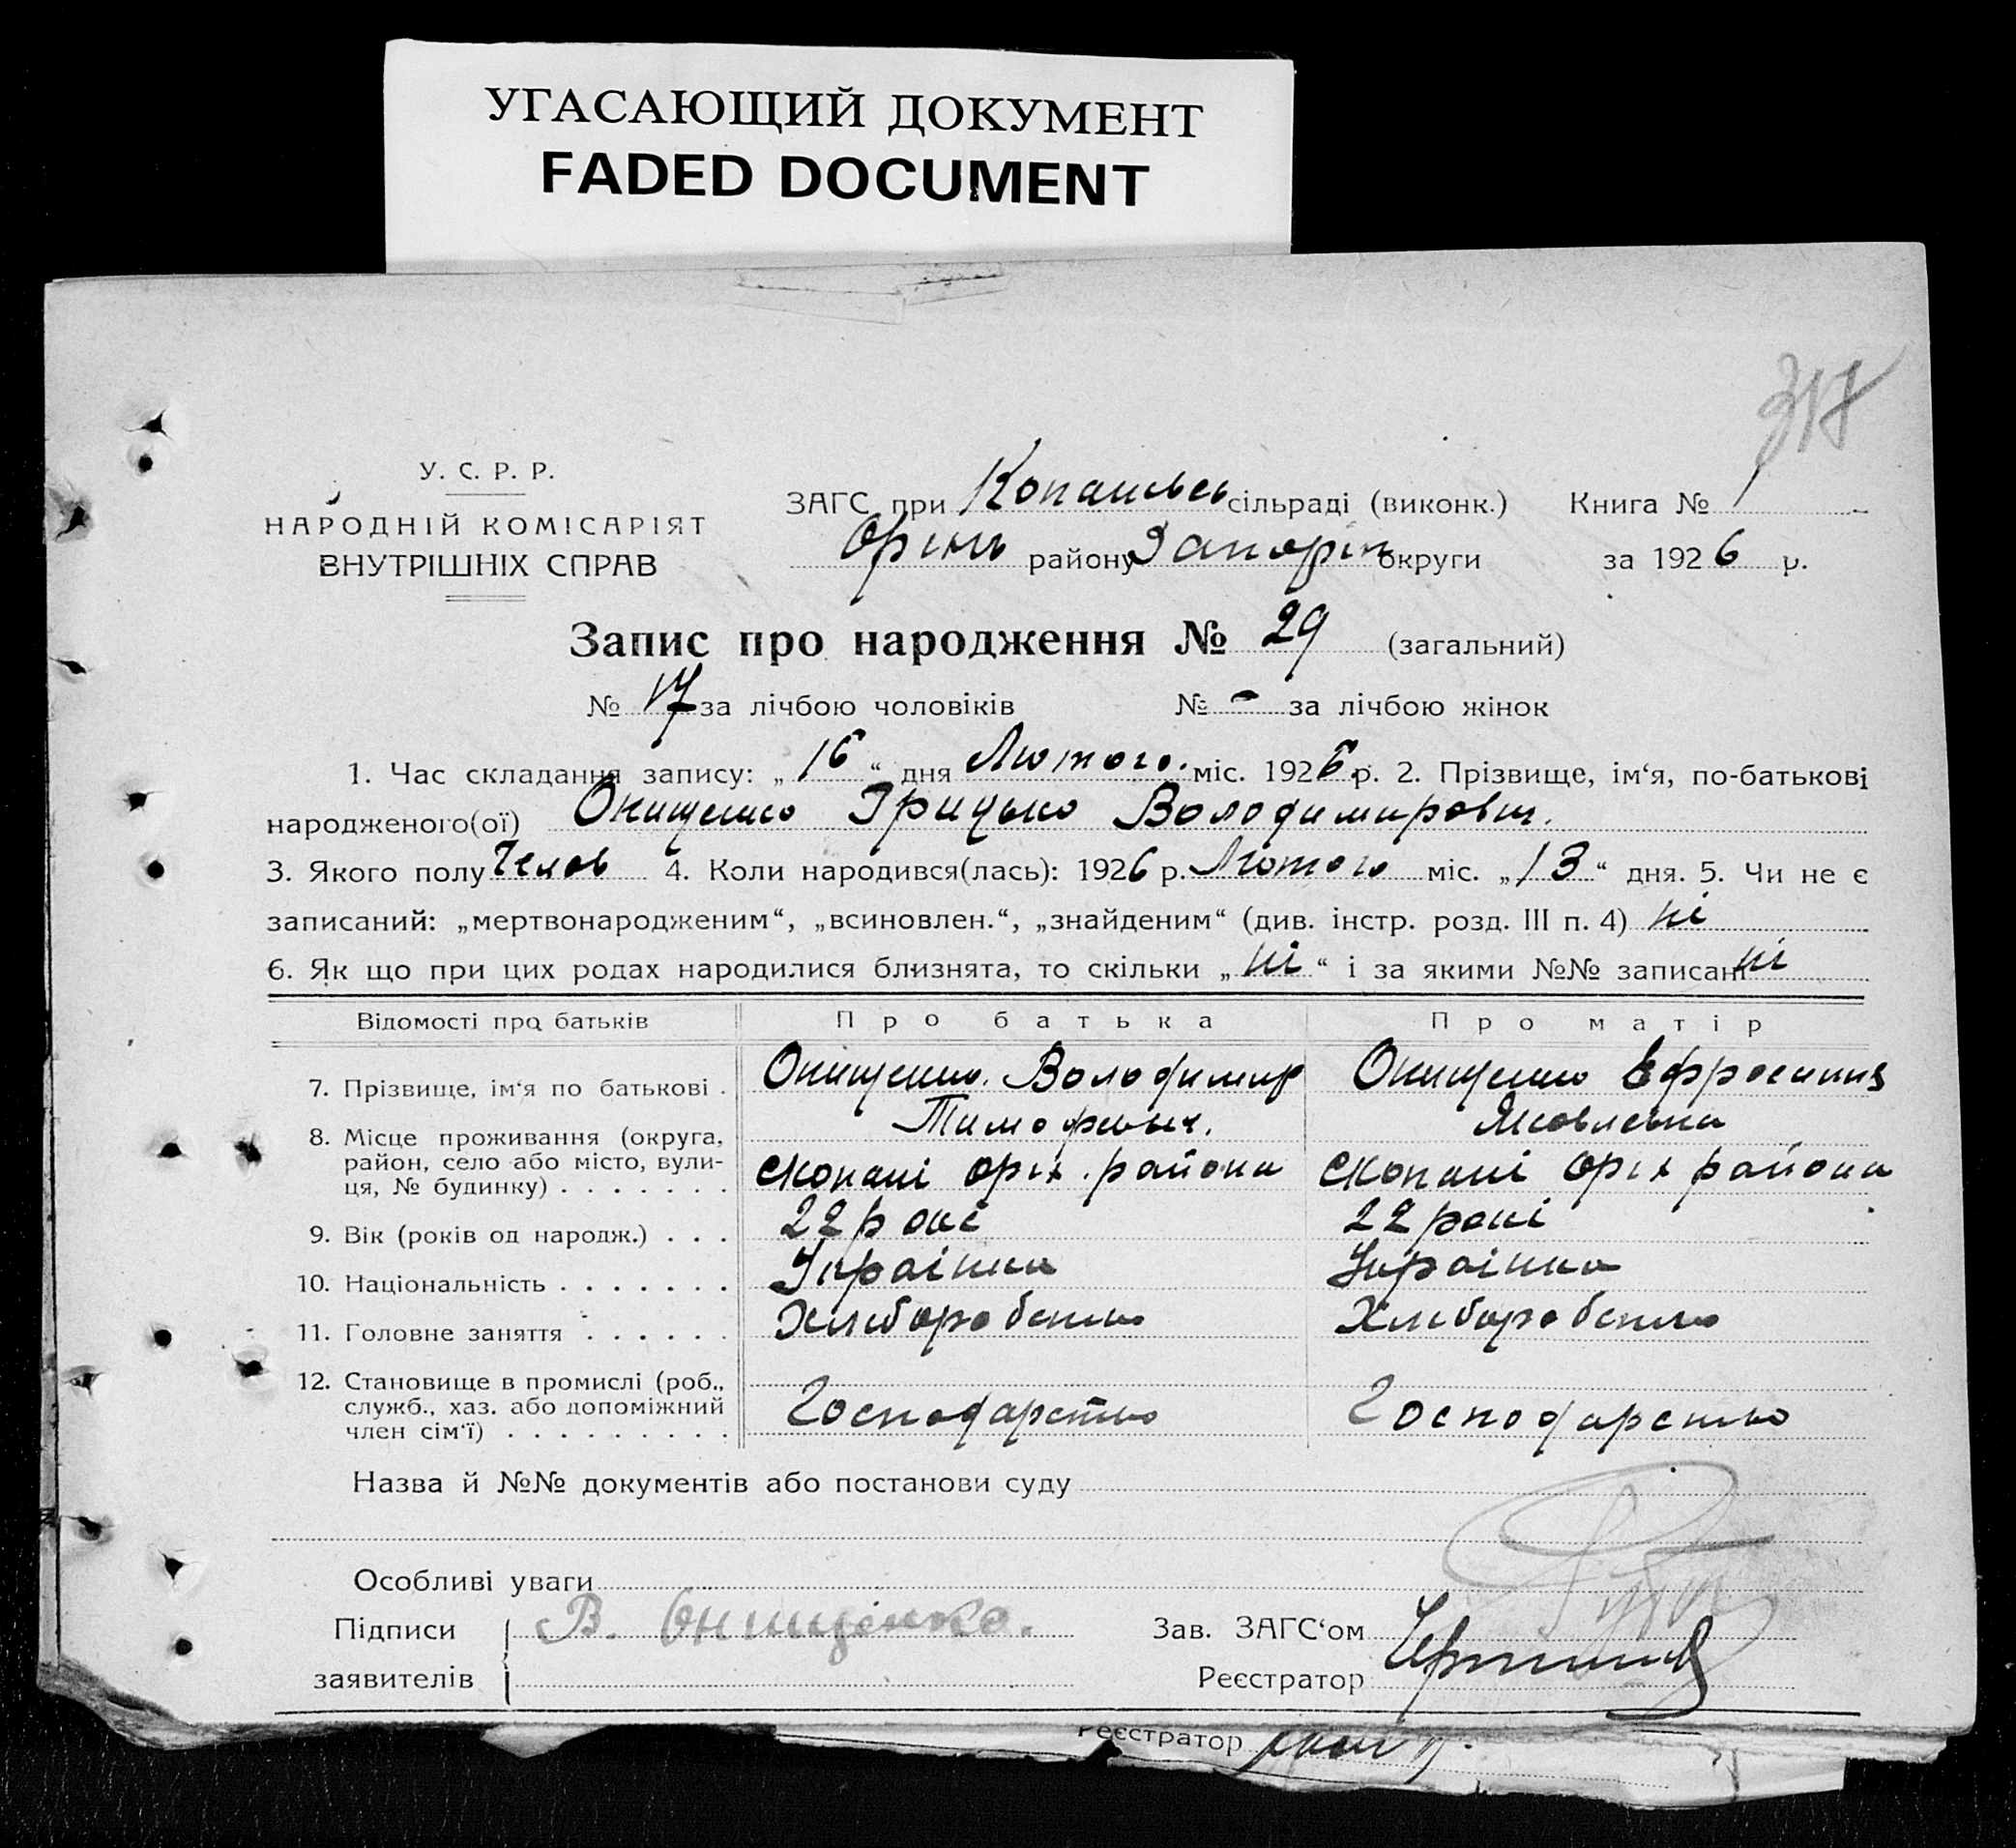 УГАСАЮЩИЙ ДОКУМЕНТ
FADED DOCUMENT
317
У. С. Р. Р.
НАРОДНІЙ КОМІСАРІЯТ
ВНУТРІШНІХ СПРАВ
ЗАГС при Копансько сільраді (виконк.) Книга № 1
Оріхі району Запоріж округи за 1926 р.
Запис про народження № 29 (загальний)
№ 17 за лічбою чоловіків № - за лічбою жінок
1. Час складання запису: „16“ дня Лютого. міс. 1926 р. 2. Прізвище, ім‘я, по-батькові
народженого(ої) Онищенко Грицько Володимирович.
3. Якого полу Челов 4. Коли народився(лась): 1926 р. Лютого міс. „13“ дня. 5. Чи не є
записаний: „мертвонародженим“, „всиновлен.“, „знайденим“ (див. інстр. розд. III п. 4) ні
6. Як що при цих родах народилися близнята, то скільки „ні“ і за якими №№ записані ні
Відомості про батьків Про батька Про матір
7. Прізвище, ім‘я по батькові . Онищенко Володимир Тимофеевич. Онищенко Ефросиния Яковлевна
8. Місце проживання (округа,
район, село або місто, вули-
ця, № будинку) . . . . . . . Скопані Оріх. района Скопані Оріх района
9. Вік (років од народж.) . . . 22 рокі 22 рокі
10. Національність . . . . . . . Українка Українка
11. Головне заняття . . . . . . Хліборобство Хліборобство
12. Становище в промислі (роб.,
служб., хаз. або допоміжний
член сім‘ї) . . . . . . . . . Господарство Господарство
Назва й №№ документів або постанови суду
Особливі уваги
Підписи В. Онищінко. Зав. ЗАГС‘ом
заявителів Реєстратор
Реєстратор